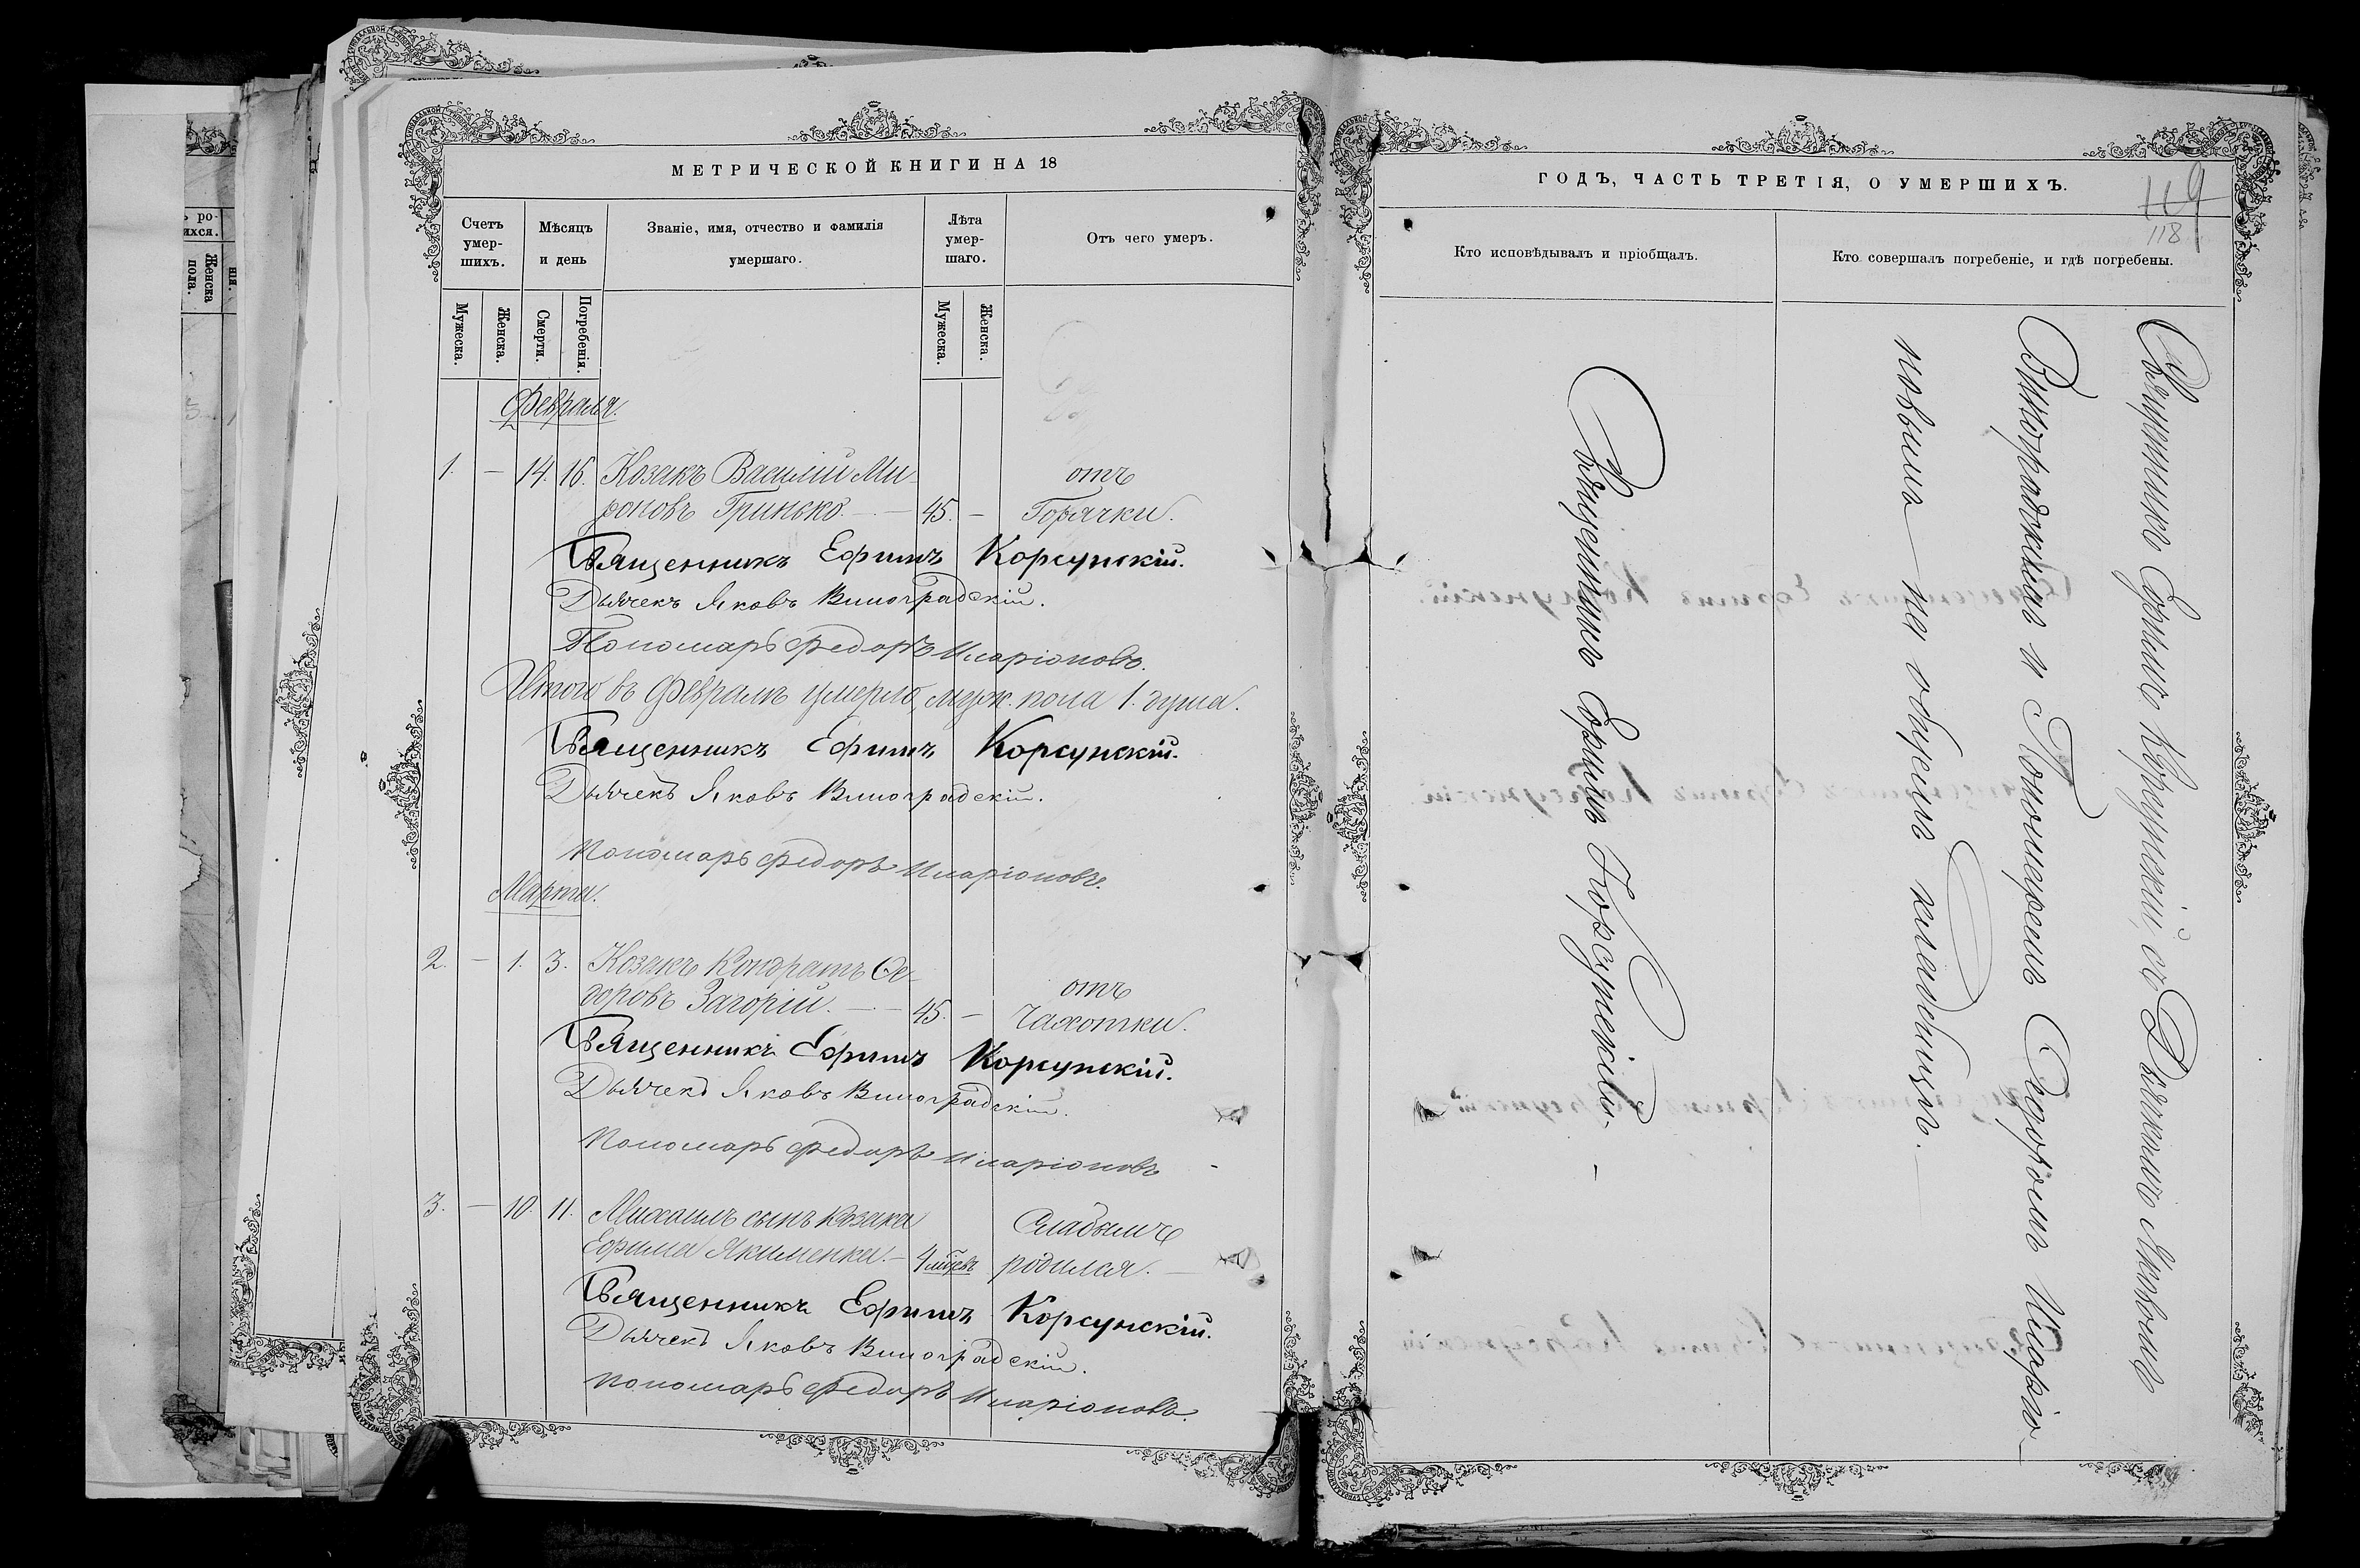 МЕТРИЧЕСКОЙ КНИГИ НА 18
Счетъ умер-
шихъ.
Мѣсяцъ
и день
Званіе, имя, отчество и фамилія
умершаго.
Лѣта
умер-
шаго.
Отъ чего умеръ.
Мужеска.
Женска.
Смерти.
Погребенія.
Мужеска.
Женска.
Февраля.
1. — 14. 16. Козакъ Василій Ми- отъ
роновъ Гринько. — 45. — Горячки.
Священникъ Ефимъ Корсунскій.
Дьячекъ Яковъ Виноградскій.
Пономарь Федоръ Иларіоновъ.
Итого въ Февралѣ умерло муж. пола 1. душа.
Священникъ Ефимъ Корсунскій.
Дьячекъ Яковъ Виноградскій.
Пономарь Федоръ Иларіоновъ.
Марта.
2. — 1. 3. Козакъ Кондратъ Ѳе-
доровъ Загорій. — 45. — отъ Чахотки.
Священникъ Ефимъ Корсунскій.
Дьячекъ Яковъ Виноградскій.
Пономарь Федоръ Иларіоновъ
3. — 10. 11. Михаилъ сынъ козака Слабымъ
Ефима Якименка. — 4 родился. —
Священникъ Ефимъ Корсунскій.
Дьячекъ Яковъ Виноградскій.
Пономарь Федоръ Иларіоновъ.
ГОДЪ, ЧАСТЬ ТРЕТІЯ, О УМЕРШИХЪ.
119
118
Кто исповѣдывалъ и пріобщалъ.
Кто совершалъ погребеніе, и гдѣ погребены.
Священникъ Ефимъ Корсунскій. —
Священникъ Ефимъ Корсунскій, съ Дьячкомъ Яковомъ
Виноградскимъ и Пономаремъ Федоромъ Иларіо-
новымъ — на общемъ кладбищѣ.